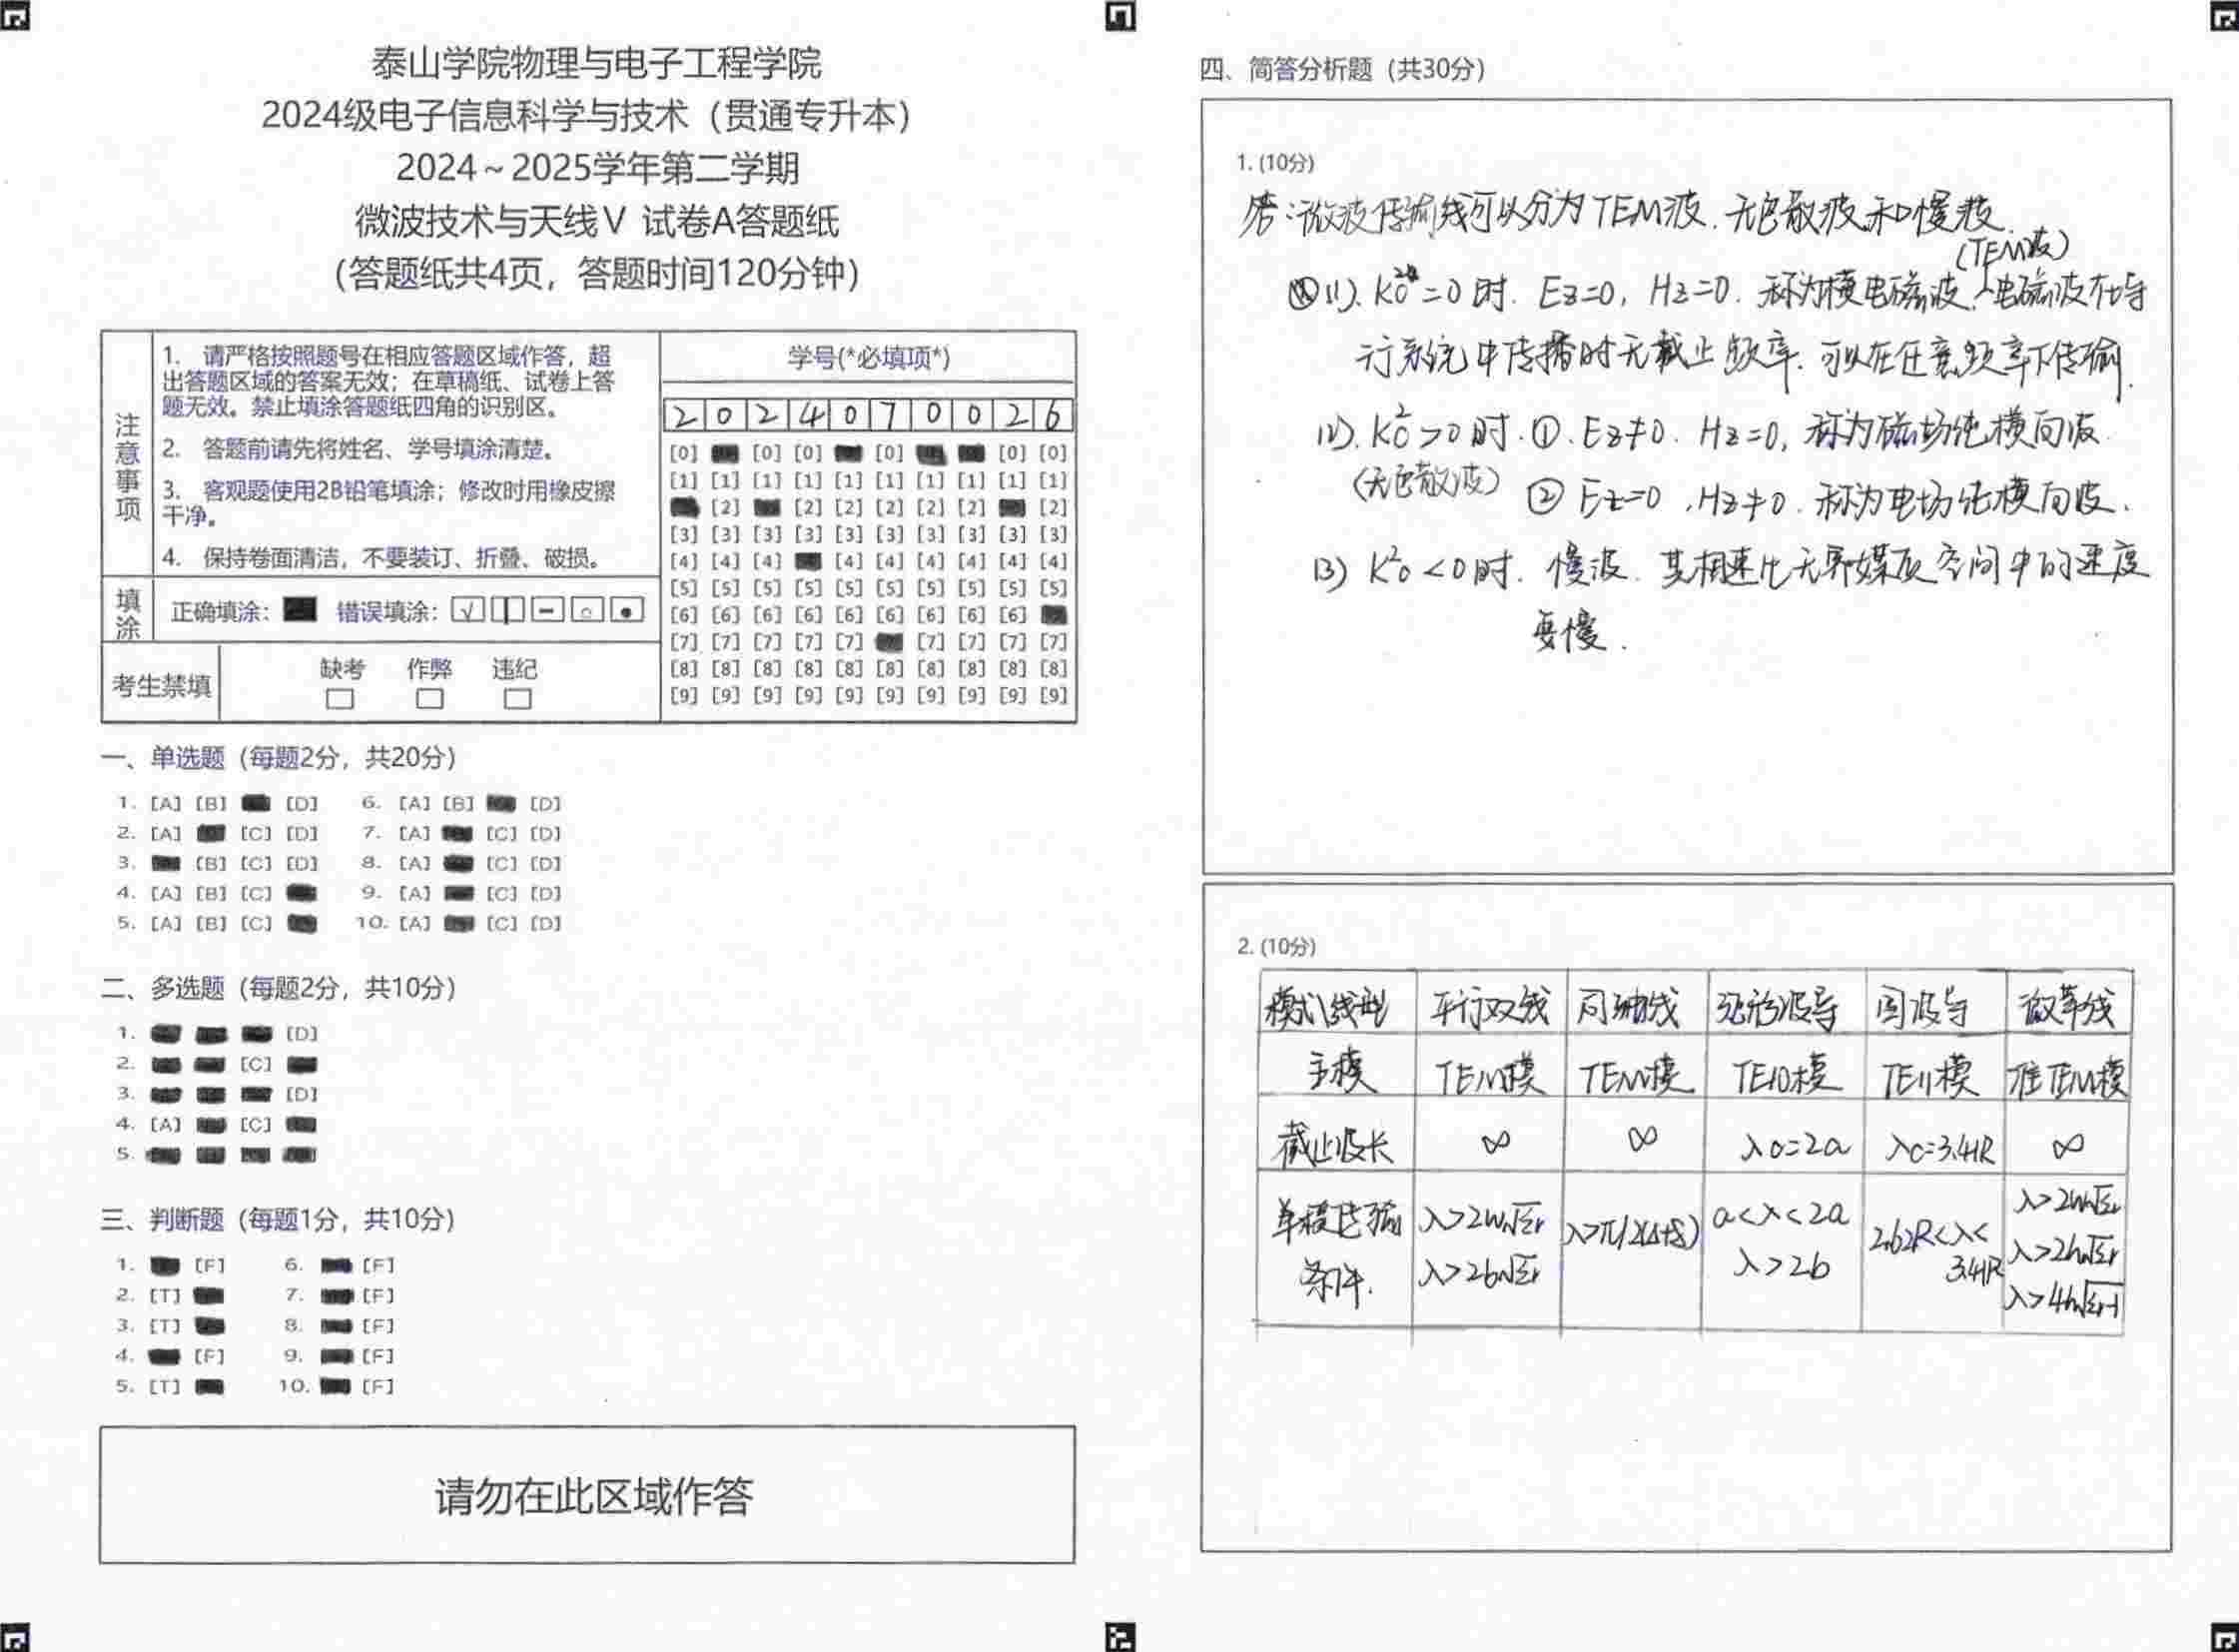 泰山学院物理与电子工程学院
2024级电子信息科学与技术（贯通专升本）
2024～2025学年第二学期
微波技术与天线Ⅴ 试卷A答题纸
（答题纸共4页，答题时间120分钟）
注意事项
1. 请严格按照题号在相应答题区域作答，超
出答题区域的答案无效；在草稿纸、试卷上答
题无效。禁止填涂答题纸四角的识别区。
2. 答题前请先将姓名、学号填涂清楚。
3. 客观题使用2B铅笔填涂；修改时用橡皮擦
干净。
4. 保持卷面清洁，不要装订、折叠、破损。
填涂
正确填涂： 错误填涂：
考生禁填
缺考 作弊 违纪
学号(*必填项*)
2 0 2 4 0 7 0 0 2 6
[0] [0] [0] [0] [0] [0]
[1] [1] [1] [1] [1] [1] [1] [1] [1] [1]
[2] [2] [2] [2] [2] [2] [2]
[3] [3] [3] [3] [3] [3] [3] [3] [3] [3]
[4] [4] [4] [4] [4] [4] [4] [4] [4]
[5] [5] [5] [5] [5] [5] [5] [5] [5] [5]
[6] [6] [6] [6] [6] [6] [6] [6] [6]
[7] [7] [7] [7] [7] [7] [7] [7] [7]
[8] [8] [8] [8] [8] [8] [8] [8] [8] [8]
[9] [9] [9] [9] [9] [9] [9] [9] [9] [9]
一、单选题（每题2分，共20分）
1. [A] [B] [D] 6. [A] [B] [D]
2. [A] [C] [D] 7. [A] [C] [D]
3. [B] [C] [D] 8. [A] [C] [D]
4. [A] [B] [C] 9. [A] [C] [D]
5. [A] [B] [C] 10. [A] [C] [D]
二、多选题（每题2分，共10分）
1. [D]
2. [C]
3. [D]
4. [A] [C]
5.
三、判断题（每题1分，共10分）
1. [F] 6. [F]
2. [T] 7. [F]
3. [T] 8. [F]
4. [F] 9. [F]
5. [T] 10. [F]
请勿在此区域作答
四、简答分析题（共30分）
1. (10分)
答：微波传输线可以分为TEM波、无色散波和慢波.
(TEM波)
(1). Kc²=0时. Ez=0, Hz=0. 称为横电磁波. 电磁波在导
行系统中传播时无截止频率. 可以在任意频率下传输.
(2). Kc²>0时. ①. Ez≠0. Hz=0, 称为磁场纯横向波.
(无色散波) ② Ez=0, Hz≠0. 称为电场纯横向波.
(3) K²c<0时. 慢波. 其相速比无界媒质空间中的速度
要慢.
2. (10分)
模式\线型 平行双线 同轴线 矩形波导 圆波导 微带线
主模 TEM模 TEM模 TE10模 TE11模 准TEM模
截止波长 ∞ ∞ λc=2a λc=3.41R ∞
单模传输 λ>2w√εr a<λ<2a 2.62R<λ< λ>2w√εr
条件. λ>2b√εr λ>2b 3.41R λ>2h√εr
λ>4h√εr-1